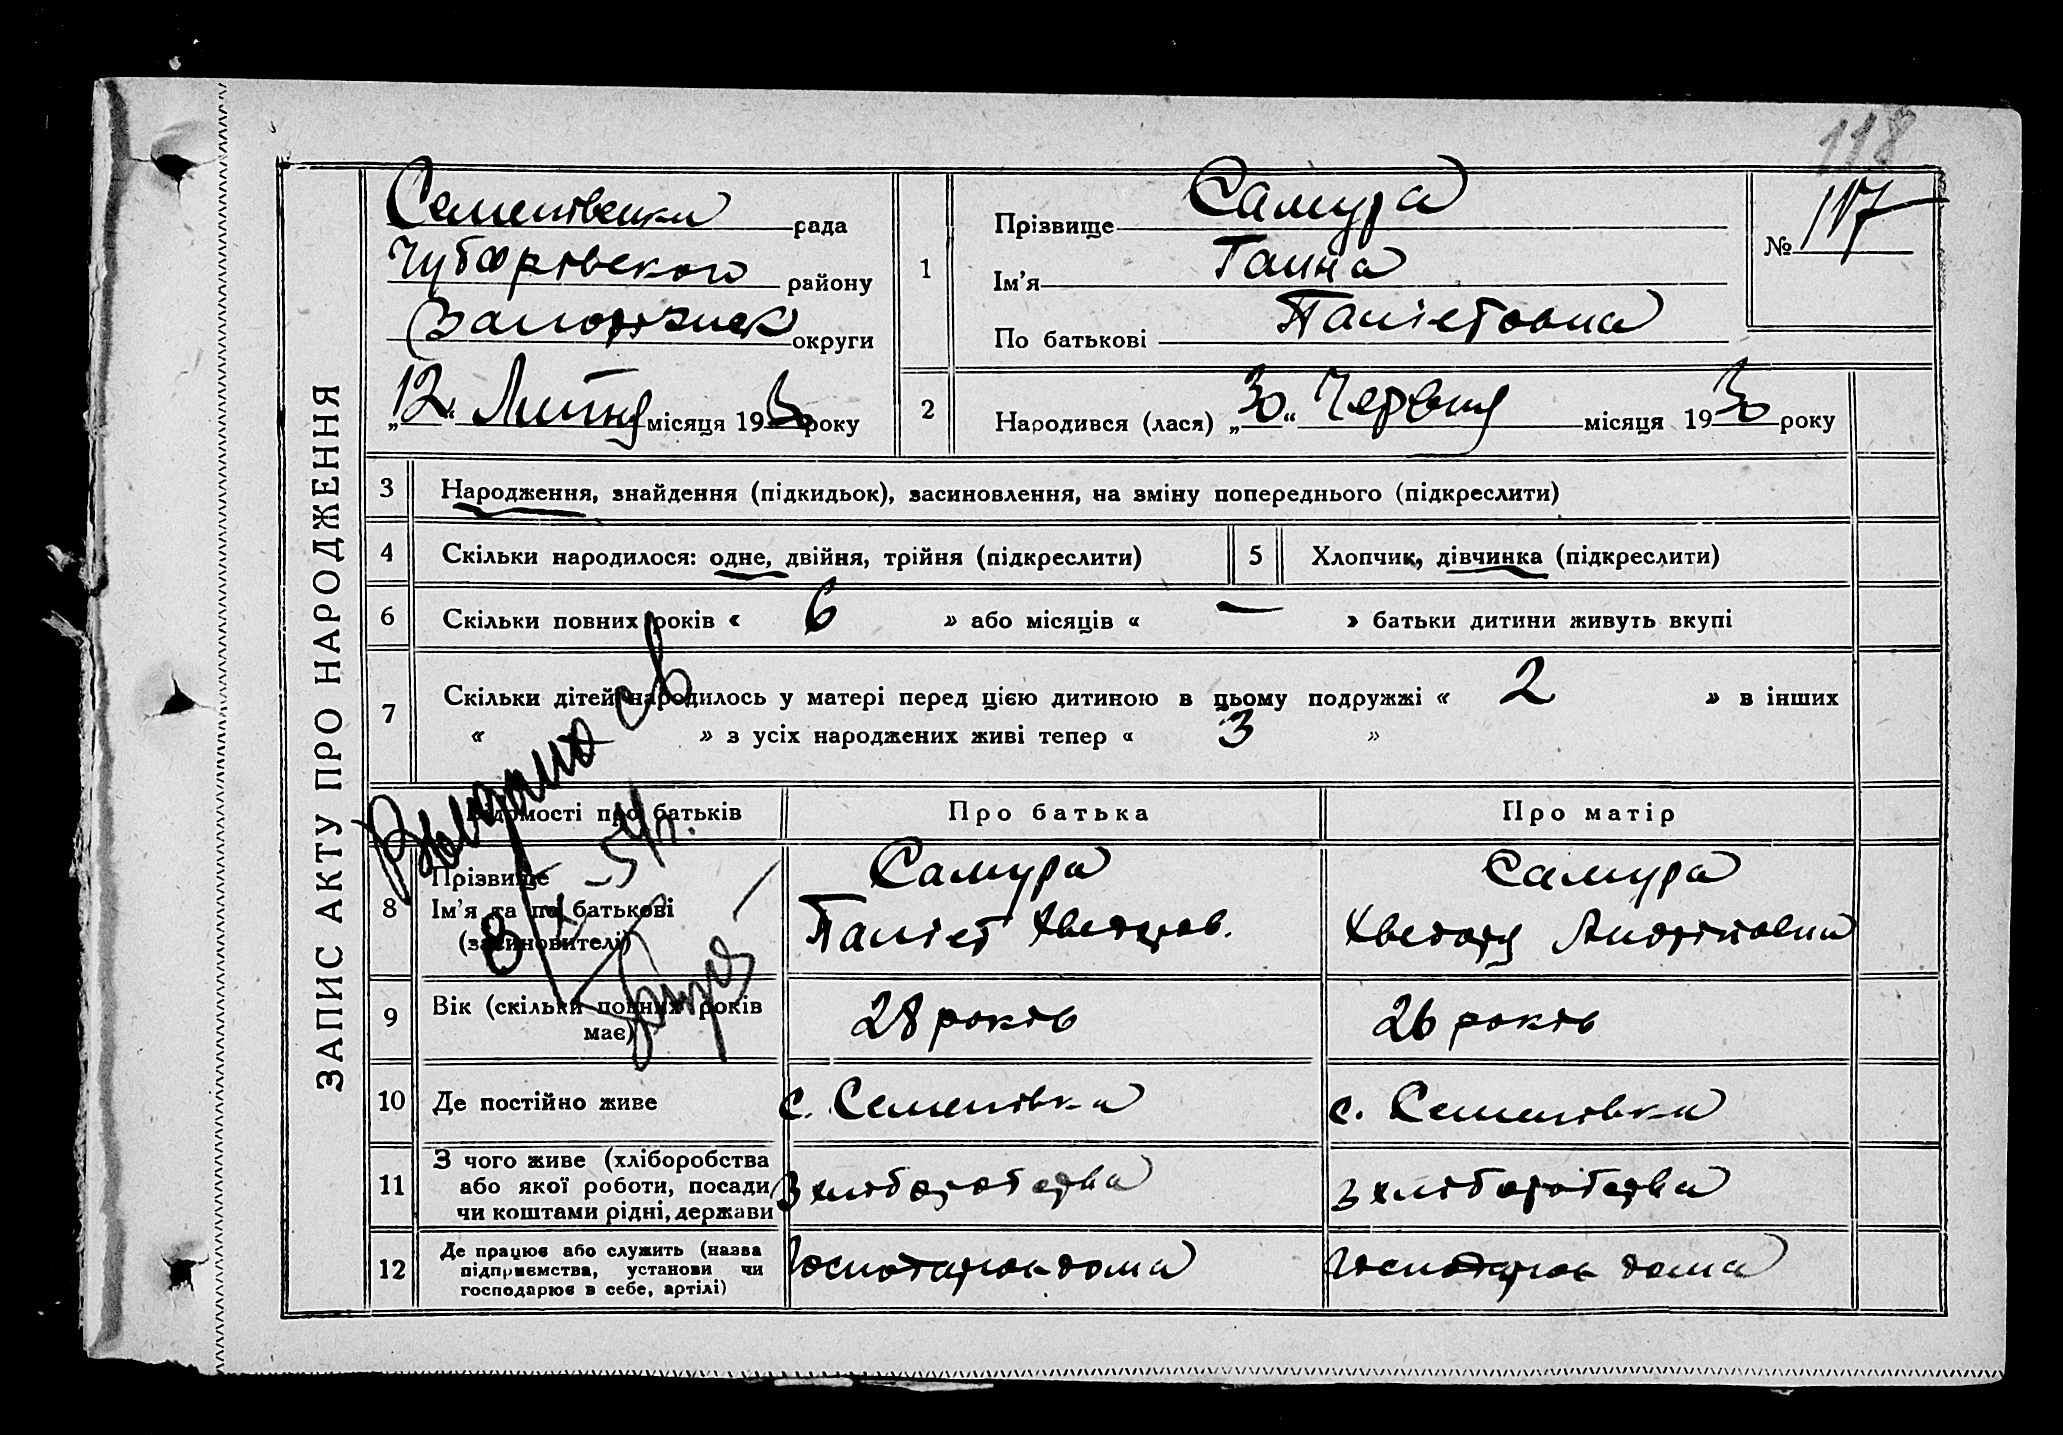 118
ЗАПИС АКТУ ПРО НАРОДЖЕННЯ
Семенівська рада
Чубарівського району
Запоріжськ округи
„12“ Липня місяця 1930 року
1
Прізвище Самура
Ім'я Ганна
По батькові
№ 117
2 Народився (лася) „30“ Червня місяця 1930 року
3 Народження, знайдення (підкидьок), засиновлення, на зміну попереднього (підкреслити)
4 Скільки народилося: одне, двійня, трійня (підкреслити)
5 Хлопчик, дівчинка (підкреслити)
6 Скільки повних років « 6 » або місяців « — » батьки дитини живуть вкупі
7 Скільки дітей народилось у матері перед цією дитиною в цьому подружжі « 2 » в інших
« » з усіх народжених живі тепер « 3 »
Відомості про батьків
Про батька
Про матір
8 Прізвище
Ім'я та по батькові
(засиновителі)
Самура
Хведоров.
Самура
Хведора Андріївна
9 Вік (скільки повних років
має)
28 років
26 років
10 Де постійно живе
с. Семенівка
с. Семенівка
11 З чого живе (хліборобства
або якої роботи, посади,
чи коштами рідні, держави
З хліборобства
З хліборобства
12 Де працює або служить (назва
підприємства, установи чи
господарює в себе, артілі)
Господарює дома
Господарює дома
Выдано св